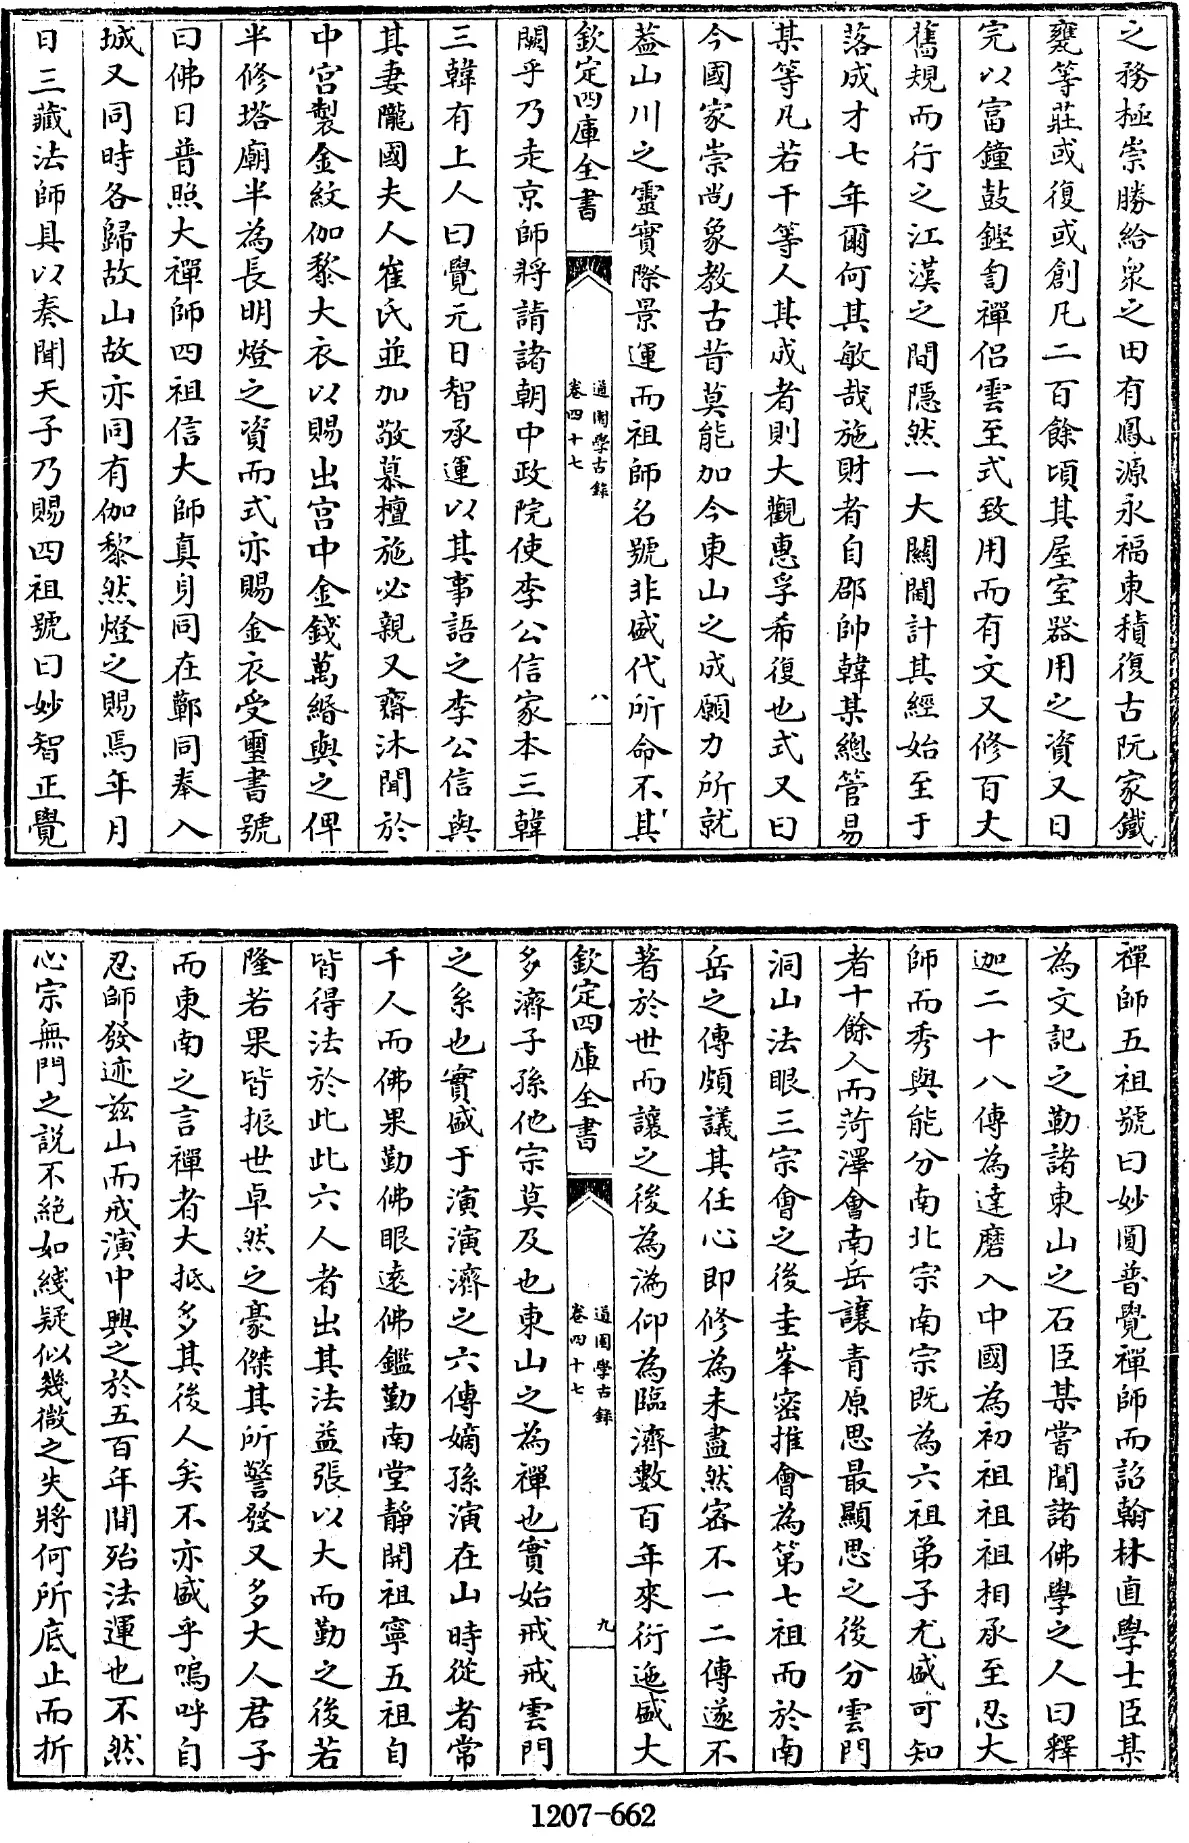 之務極崇勝給衆之田有鳳源永福東積復古阮家鐵
甕等莊或復或創凡二百餘頃其屋室器用之資又日
完以富鐘鼓鏗訇禪侶雲至式致用而有文又修百大
舊規而行之江漢之間隱然一大關閫計其經始至于
落成才七年爾何其敏哉施財者自郡帥韓某總管易
某等凡若干等人其成者則大觀惠孚希復也式又曰
今國家崇尚象教古昔莫能加今東山之成願力所就
葢山川之靈實際景運而祖師名號非盛代所命不其
欽定四庫全書
道園學古錄
卷四十七
八
闕乎乃走京師將請諸朝中政院使李公信家本三韓
三韓有上人曰覺元日智承運以其事語之李公信與
其妻隴國夫人崔氏並加敬慕檀施必親又齋沐聞於
中宫製金紋伽黎大衣以賜出宫中金錢萬緡與之俾
半修塔廟半為長明燈之資而式亦賜金衣受璽書號
曰佛日普照大禪師四祖信大師真身同在鄿同奉入
城又同時各歸故山故亦同有伽黎然燈之賜焉年月
日三藏法師具以奏聞天子乃賜四祖號曰妙智正覺
禪師五祖號曰妙圓普覺禪師而詔翰林直學士臣某
為文記之勒諸東山之石臣某嘗聞諸佛學之人曰釋
迦二十八傳為達磨入中國為初祖祖祖相承至忍大
師而秀與能分南北宗南宗既為六祖弟子尤盛可知
者十餘人而菏澤會南岳讓青原思最顯思之後分雲門
洞山法眼三宗會之後圭峯密推會為第七祖而於南
岳之傳頗議其任心即修為未盡然密不一二傳遂不
著於世而讓之後為溈仰為臨濟數百年來衍迤盛大
欽定四庫全書
道園學古錄
卷四十七
九
多濟子孫他宗莫及也東山之為禪也實始戒戒雲門
之系也實盛于演演濟之六傳嫡孫演在山時從者常
千人而佛果勤佛眼遠佛鑑勤南堂靜開祖寧五祖自
皆得法於此此六人者出其法益張以大而勤之後若
隆若果皆振世卓然之豪傑其所警發又多大人君子
而東南之言禪者大抵多其後人矣不亦盛乎嗚呼自
忍師發迹兹山而戒演中興之於五百年間殆法運也不然
心宗無門之説不絕如綫疑似幾微之失將何所底止而折
1207-662